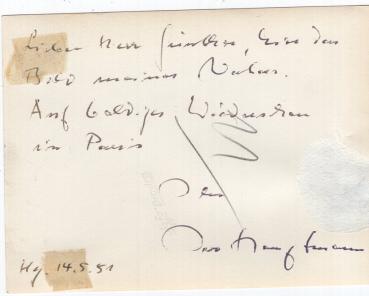 Lieber Herr Günther, hier das
Bild meines Vaters.
Auf baldiges Wiedersehen
in Paris
Ihr
Hauptmann
Hg. 14.5.51